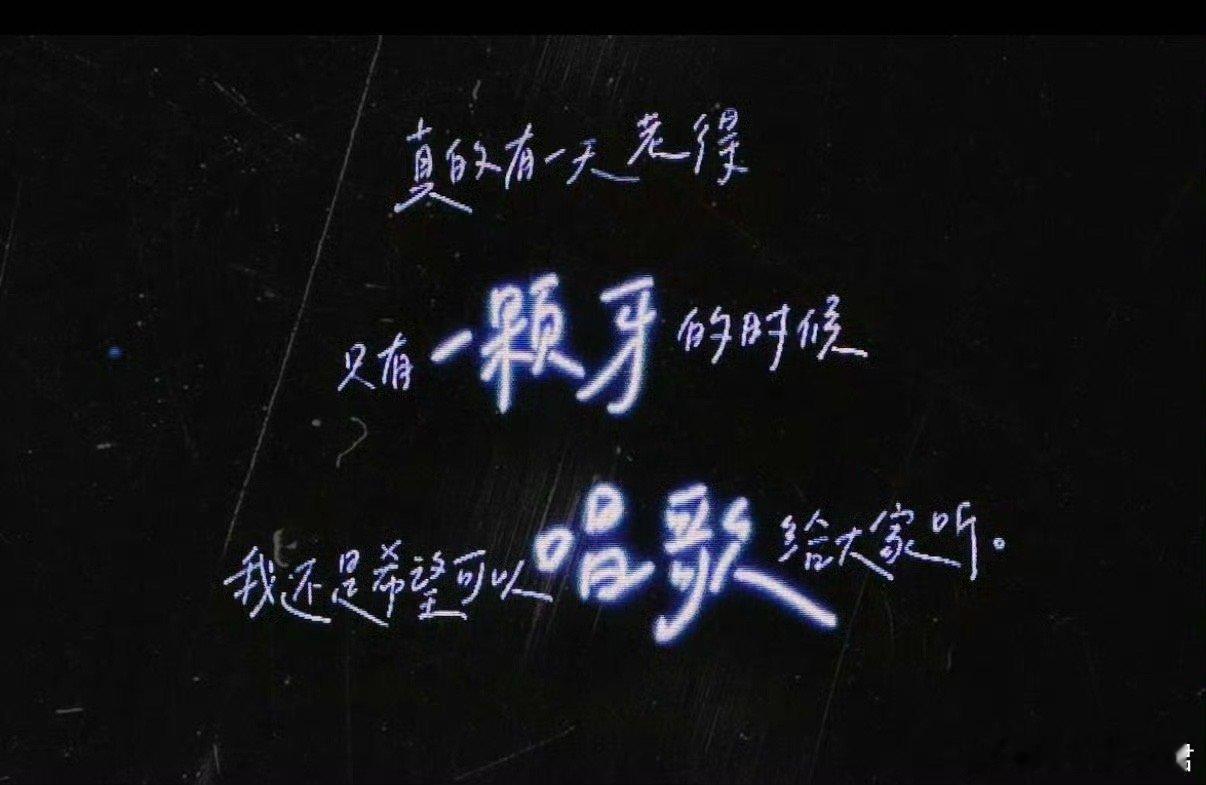 真的有一天老得
只有一颗牙的时候
我还是希望可以唱歌给大家听。